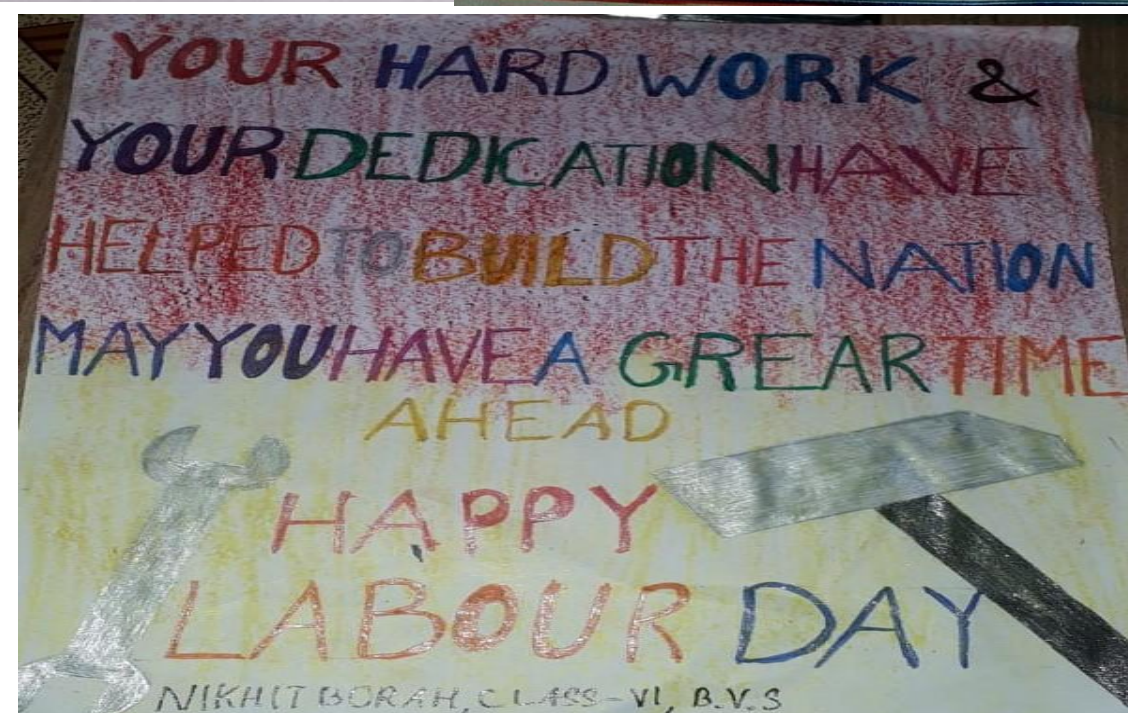 YOUR HARD WORK &
YOUR DEDICATION HAVE
HELPED TO BUILD THE NATION
MAY YOU HAVE A GREAR TIME
AHEAD
HAPPY
LABOUR DAY
NIKHIT BORAH, CLASS-VI, B.V.S